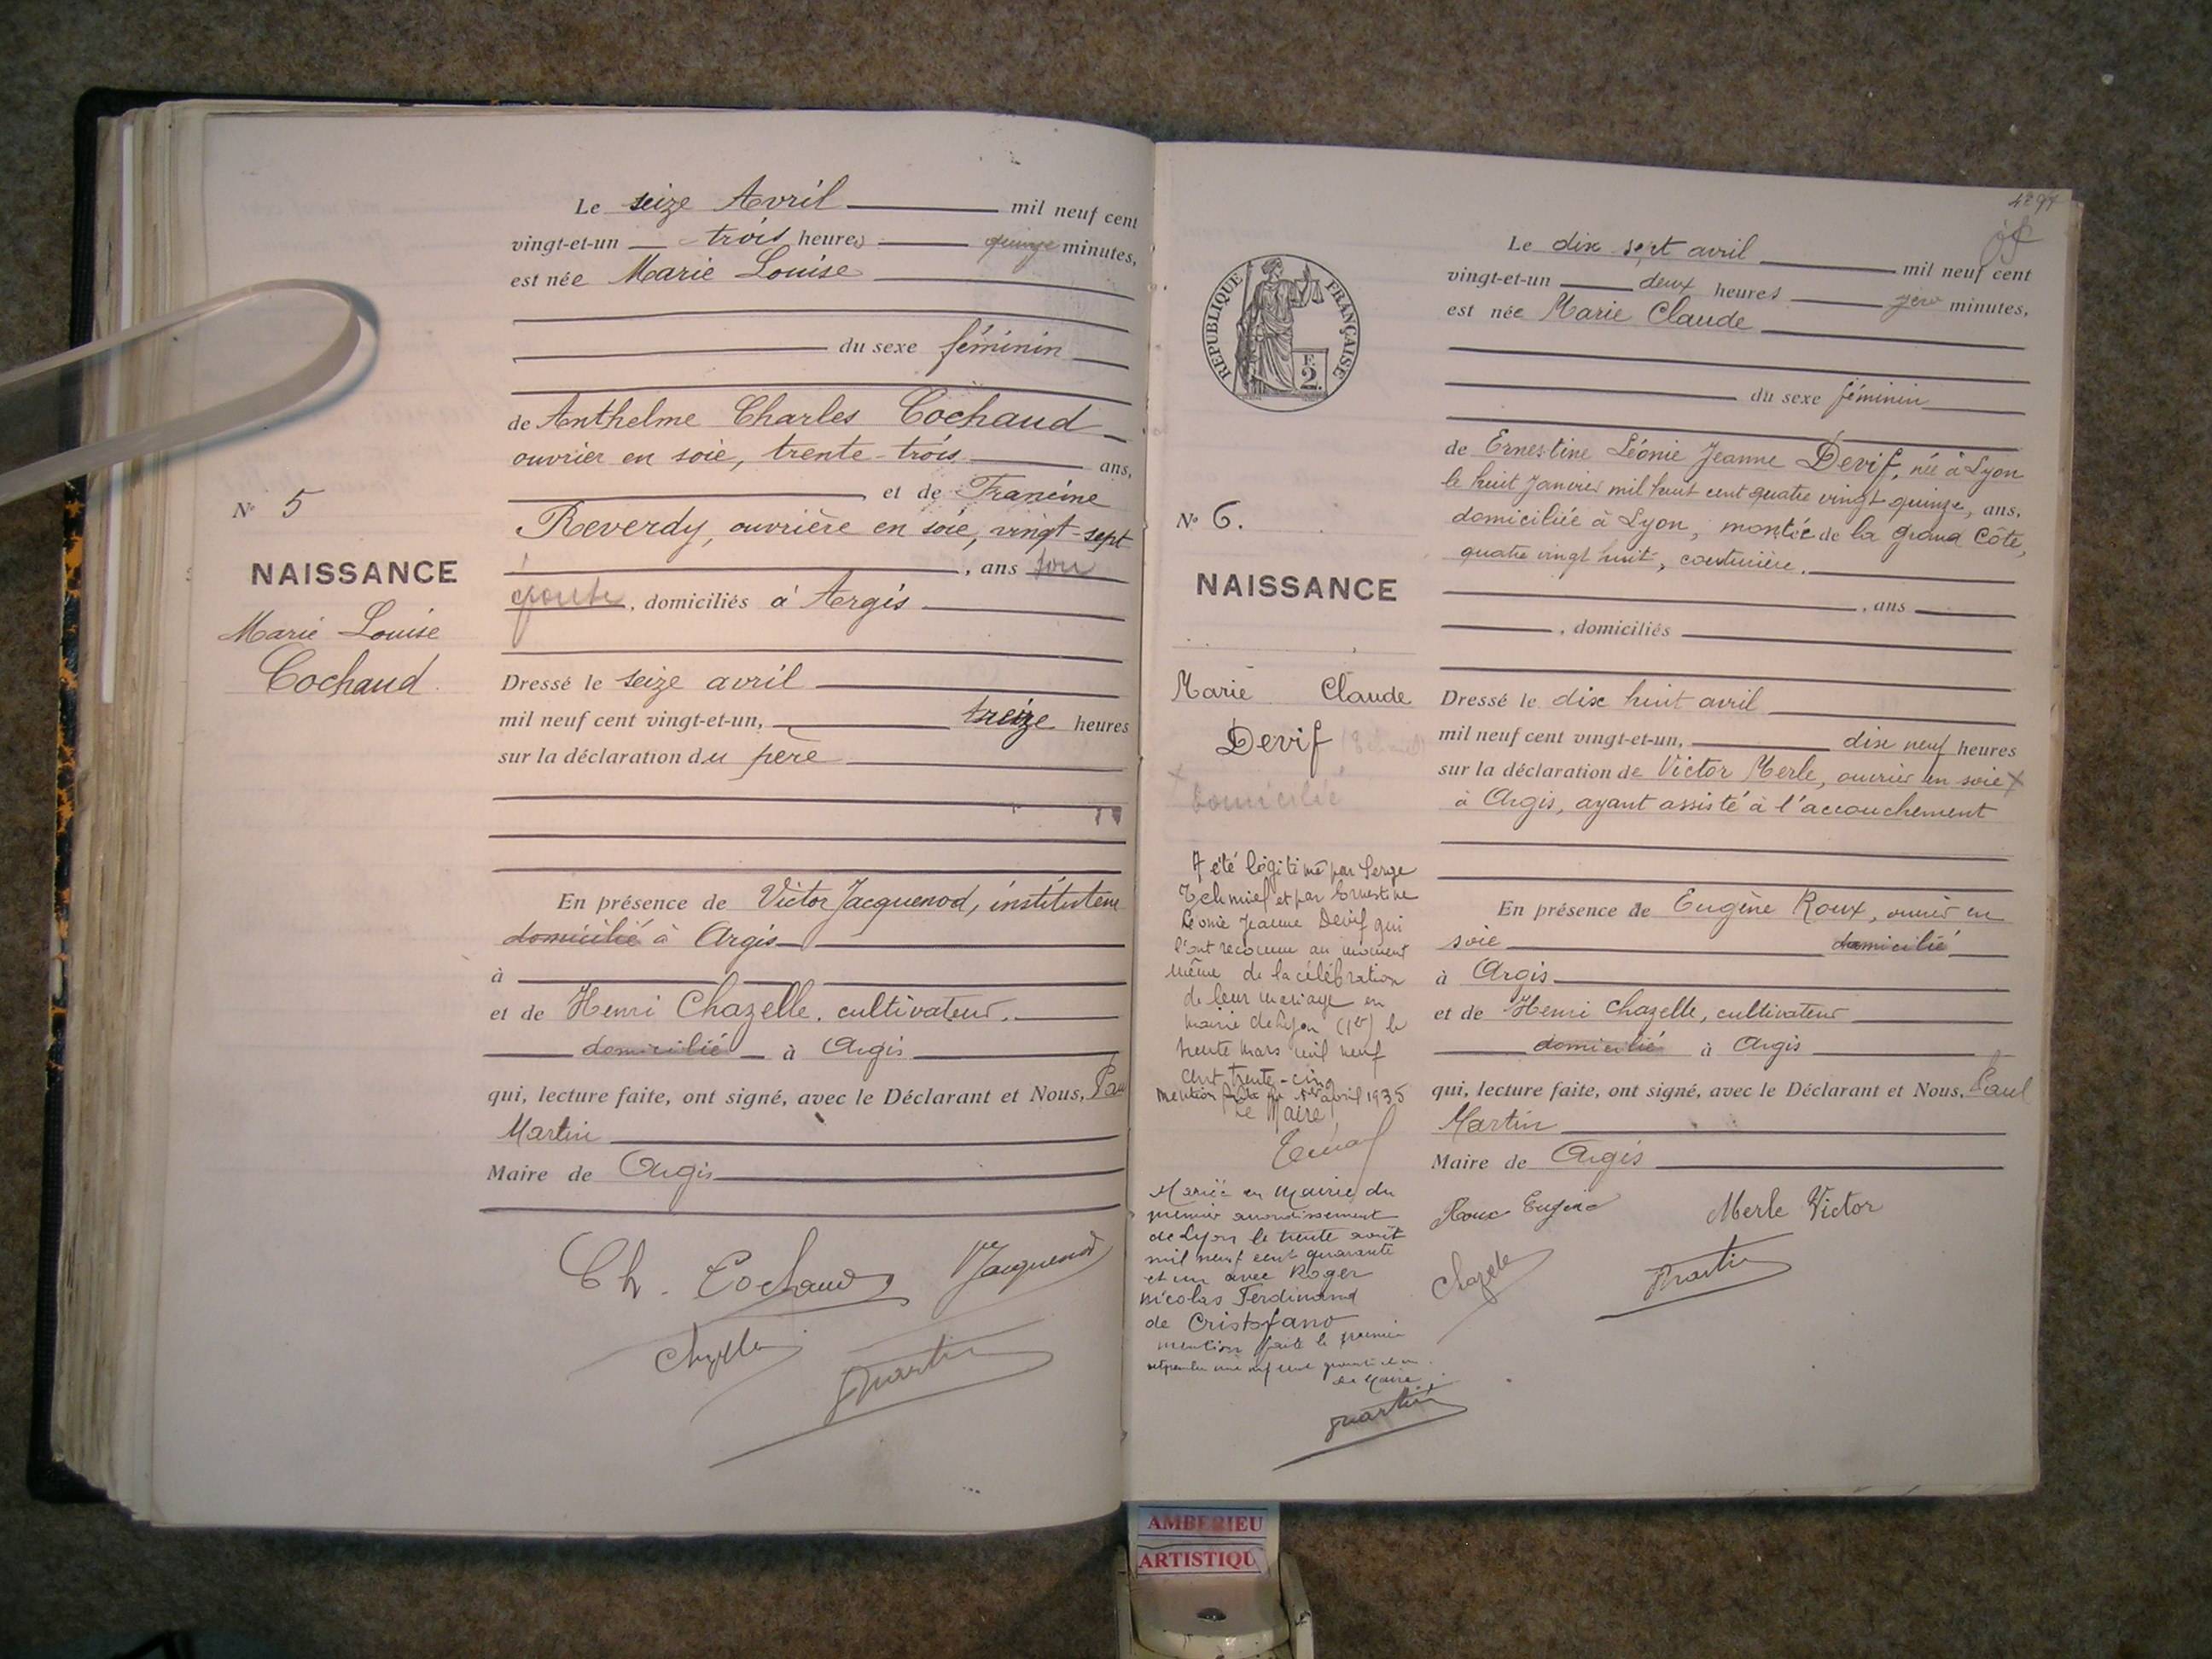 Le seize Avril mil neuf cent
vingt-et-un trois heures quinze minutes,
est née Marie Louise
du sexe féminin
de Anthelme Charles Cochaud
ouvrier en soie, trente-trois ans,
et de Francine
Reverdy, ouvrière en soie, vingt-sept
, ans son
épouse, domiciliés à Argis
Nº 5
NAISSANCE
Marie Louise
Cochaud
Dressé le seize avril
mil neuf cent vingt-et-un, treize heures
sur la déclaration du père
En présence de Victor Jacquenod, instituteur
domicilié à Argis
à
et de Henri Chazelle, cultivateur,
domicilié à Argis
qui, lecture faite, ont signé, avec le Déclarant et Nous, Paul
Martin
Maire de Argis
Ch. Cochaud Jacquenod
Chazelle
Martin
REPUBLIQUE FRANÇAISE
F.
2.
Le dix sept avril mil neuf cent
vingt-et-un deux heures zéro minutes,
est née Marie Claude
du sexe féminin
de Ernestine Léonie Jeanne Devif, née à Lyon
le huit Janvier mil huit cent quatre vingt quinze, ans,
domiciliée à Lyon, montée de la Grand Côte,
quatre vingt huit, couturière.
, ans
, domiciliés
Nº 6.
NAISSANCE
Marie Claude
Devif
domicilié
Dressé le dix huit avril
mil neuf cent vingt-et-un, dix neuf heures
sur la déclaration de Victor Merle, ouvrier en soie X
à Argis, ayant assisté à l'accouchement
En présence de Eugène Roux, ouvrier en
soie domicilié
à Argis
et de Henri Chazelle, cultivateur
domicilié à Argis
qui, lecture faite, ont signé, avec le Déclarant et Nous, Paul
Martin
Maire de Argis
Roux Eugène Merle Victor
Chazelle Martin
A été légitimé par Serge
Tchmief et par Ernestine
Léonie Jeanne Devif qui
l'ont reconnu au moment
même de la célébration
de leur mariage en
mairie de Lyon (1er) le
trente mars mil neuf
cent trente-cinq
Mention faite le 1er avril 1935
Le Maire,
Mariée en Mairie du
premier arrondissement
de Lyon le trente août
mil neuf cent quarante
et un avec Roger
Nicolas Ferdinand
de Cristofano
mention faite le premier
septembre mil neuf cent quarante et un
Le Maire,
Martin
AMBERIEU
ARTISTIQU